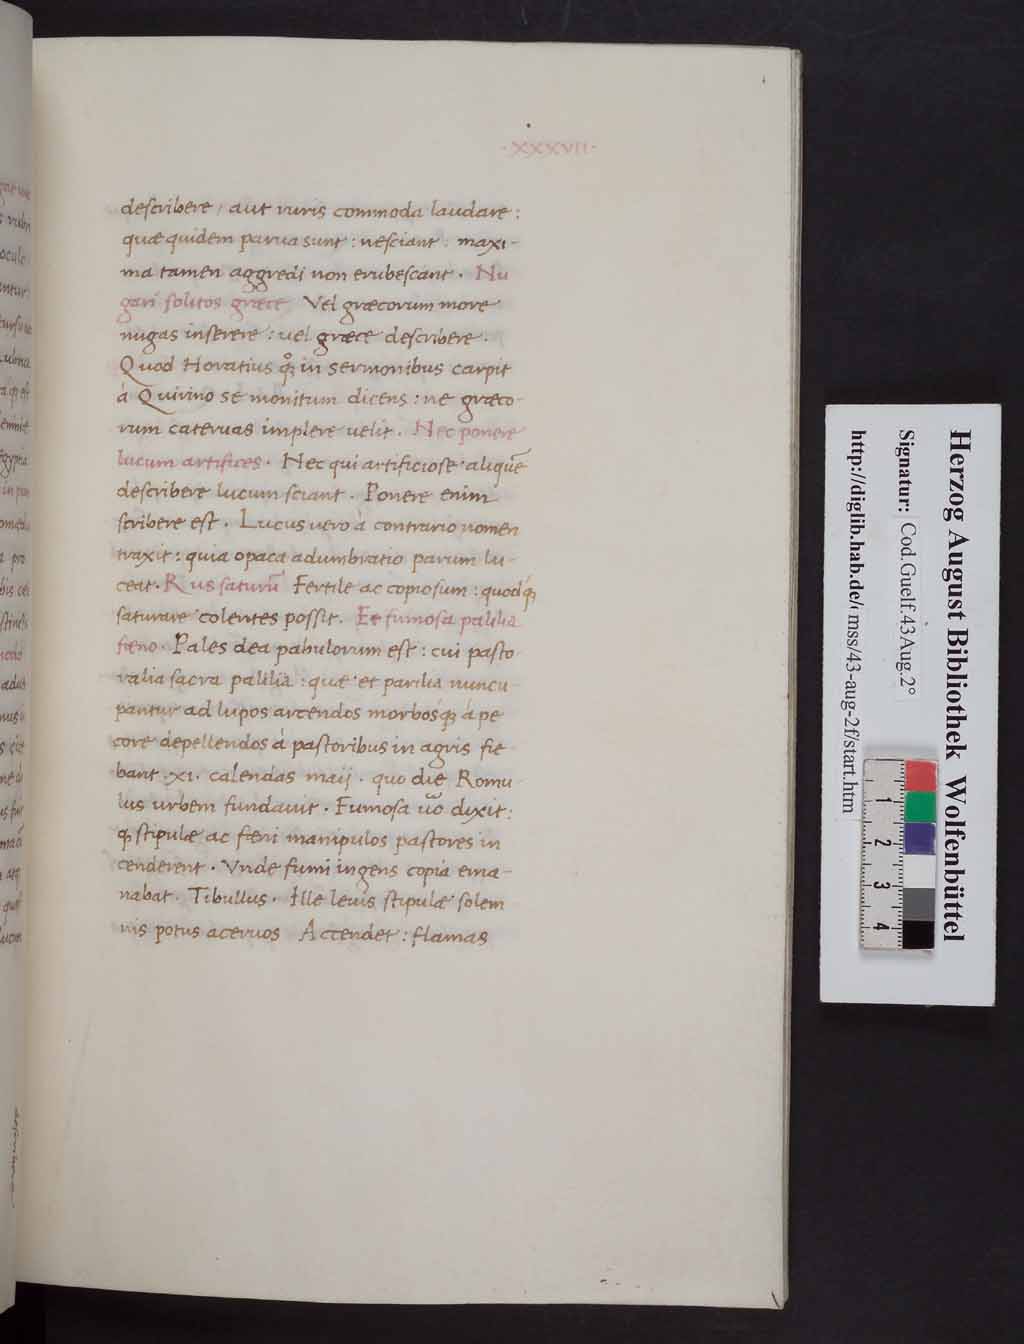 ·XXXVII·
describere / aut ruris commoda laudare :
quæ quidem parua sunt : nesciant : maxi-
ma tamen aggredi non erubescant · Nu
gari solitos græce Vel græcorum more
nugas inserere : uel græce describere ·
Quod Horatius qq̊ in sermonibus carpit
á Quirino se monitum dicens : ne græco-
rum cateruas implere uelit · Nec ponere
lucum artifices · Nec qui artificiose aliquē
describere lucum sciant · Ponere enim
scribere est · Lucus uero á contrario nomen
traxit : quia opaca adumbratio parum lu-
ceat · Rus saturū Fertile ac copiosum : quodq́
saturare colentes possit · Et fumosa palilia
fœno · Pales dea pabulorum est : cui pasto-
ralia sacra palilia : quæ et parilia nuncu-
pantur ad lupos arcendos morbosq́ á pe
core depellendos á pastoribus in agris fie
bant ·xi· calendas maij · quo die Romu-
lus urbem fundauit · Fumosa ūo dixit :
q̨ stipulæ ac fœni manipulos pastores in
cenderent · Vnde fumi ingens copia ema-
nabat · Tibullus · Ille leuis stipulæ solem
nis potus aceruos Accendet : flamas
Herzog August Bibliothek Wolfenbüttel
Signatur: Cod.Guelf.43Aug.2°
http://diglib.hab.de/ mss/43-aug-2f/start.htm
1 2 3 4